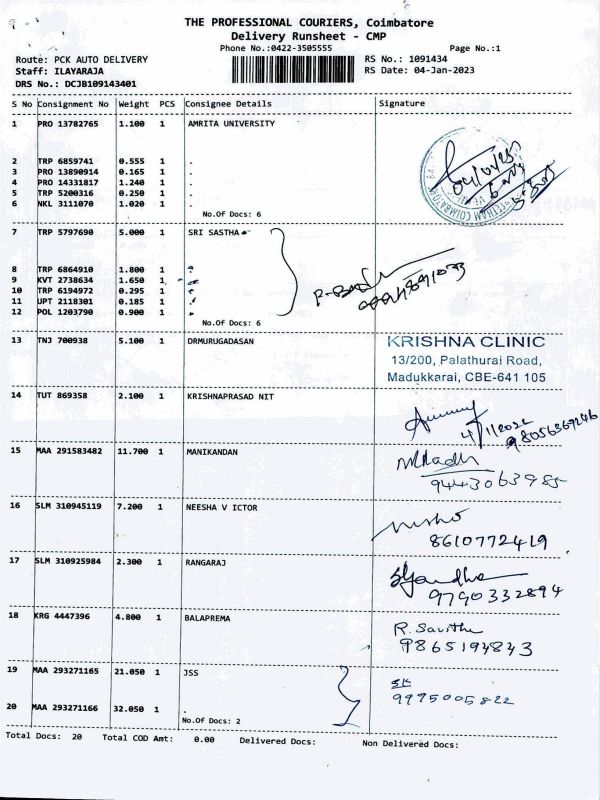 THE PROFESSIONAL COURIERS, Coimbatore
Delivery Runsheet - CMP
Phone No.:0422-3505555 Page No.:1
Route: PCK AUTO DELIVERY RS No.: 1091434
Staff: ILAYARAJA RS Date: 04-Jan-2023
DRS No.: DCJB109143401
S No Consignment No Weight PCS Consignee Details Signature
1 PRO 13782765 1.100 1 AMRITA UNIVERSITY
2 TRP 6859741 0.555 1 .
3 PRO 13890914 0.165 1 .
4 PRO 14331817 1.240 1 .
5 TRP 5200316 0.250 1 .
6 NKL 3111070 1.020 1 .
No.Of Docs: 6
7 TRP 5797690 5.000 1 SRI SASTHA
8 TRP 6864910 1.800 1
9 KVT 2738634 1.650 1
10 TRP 6194972 0.295 1
11 UPT 2118301 0.185 1
12 POL 1203790 0.900 1
No.Of Docs: 6
13 TNJ 700938 5.100 1 DRMURUGADASAN KRISHNA CLINIC
13/200, Palathurai Road,
Madukkarai, CBE-641 105
14 TUT 869358 2.100 1 KRISHNAPRASAD NIT
15 MAA 291583482 11.700 1 MANIKANDAN
9443063985
16 SLM 310945119 7.200 1 NEESHA V ICTOR
8610772419
17 SLM 310925984 2.300 1 RANGARAJ
9790332894
18 KRG 4447396 4.800 1 BALAPREMA R. Savitha
9865194843
19 MAA 293271165 21.050 1 JSS SK
9975005822
20 MAA 293271166 32.050 1 .
No.Of Docs: 2
Total Docs: 20 Total COD Amt: 0.00 Delivered Docs: Non Delivered Docs: